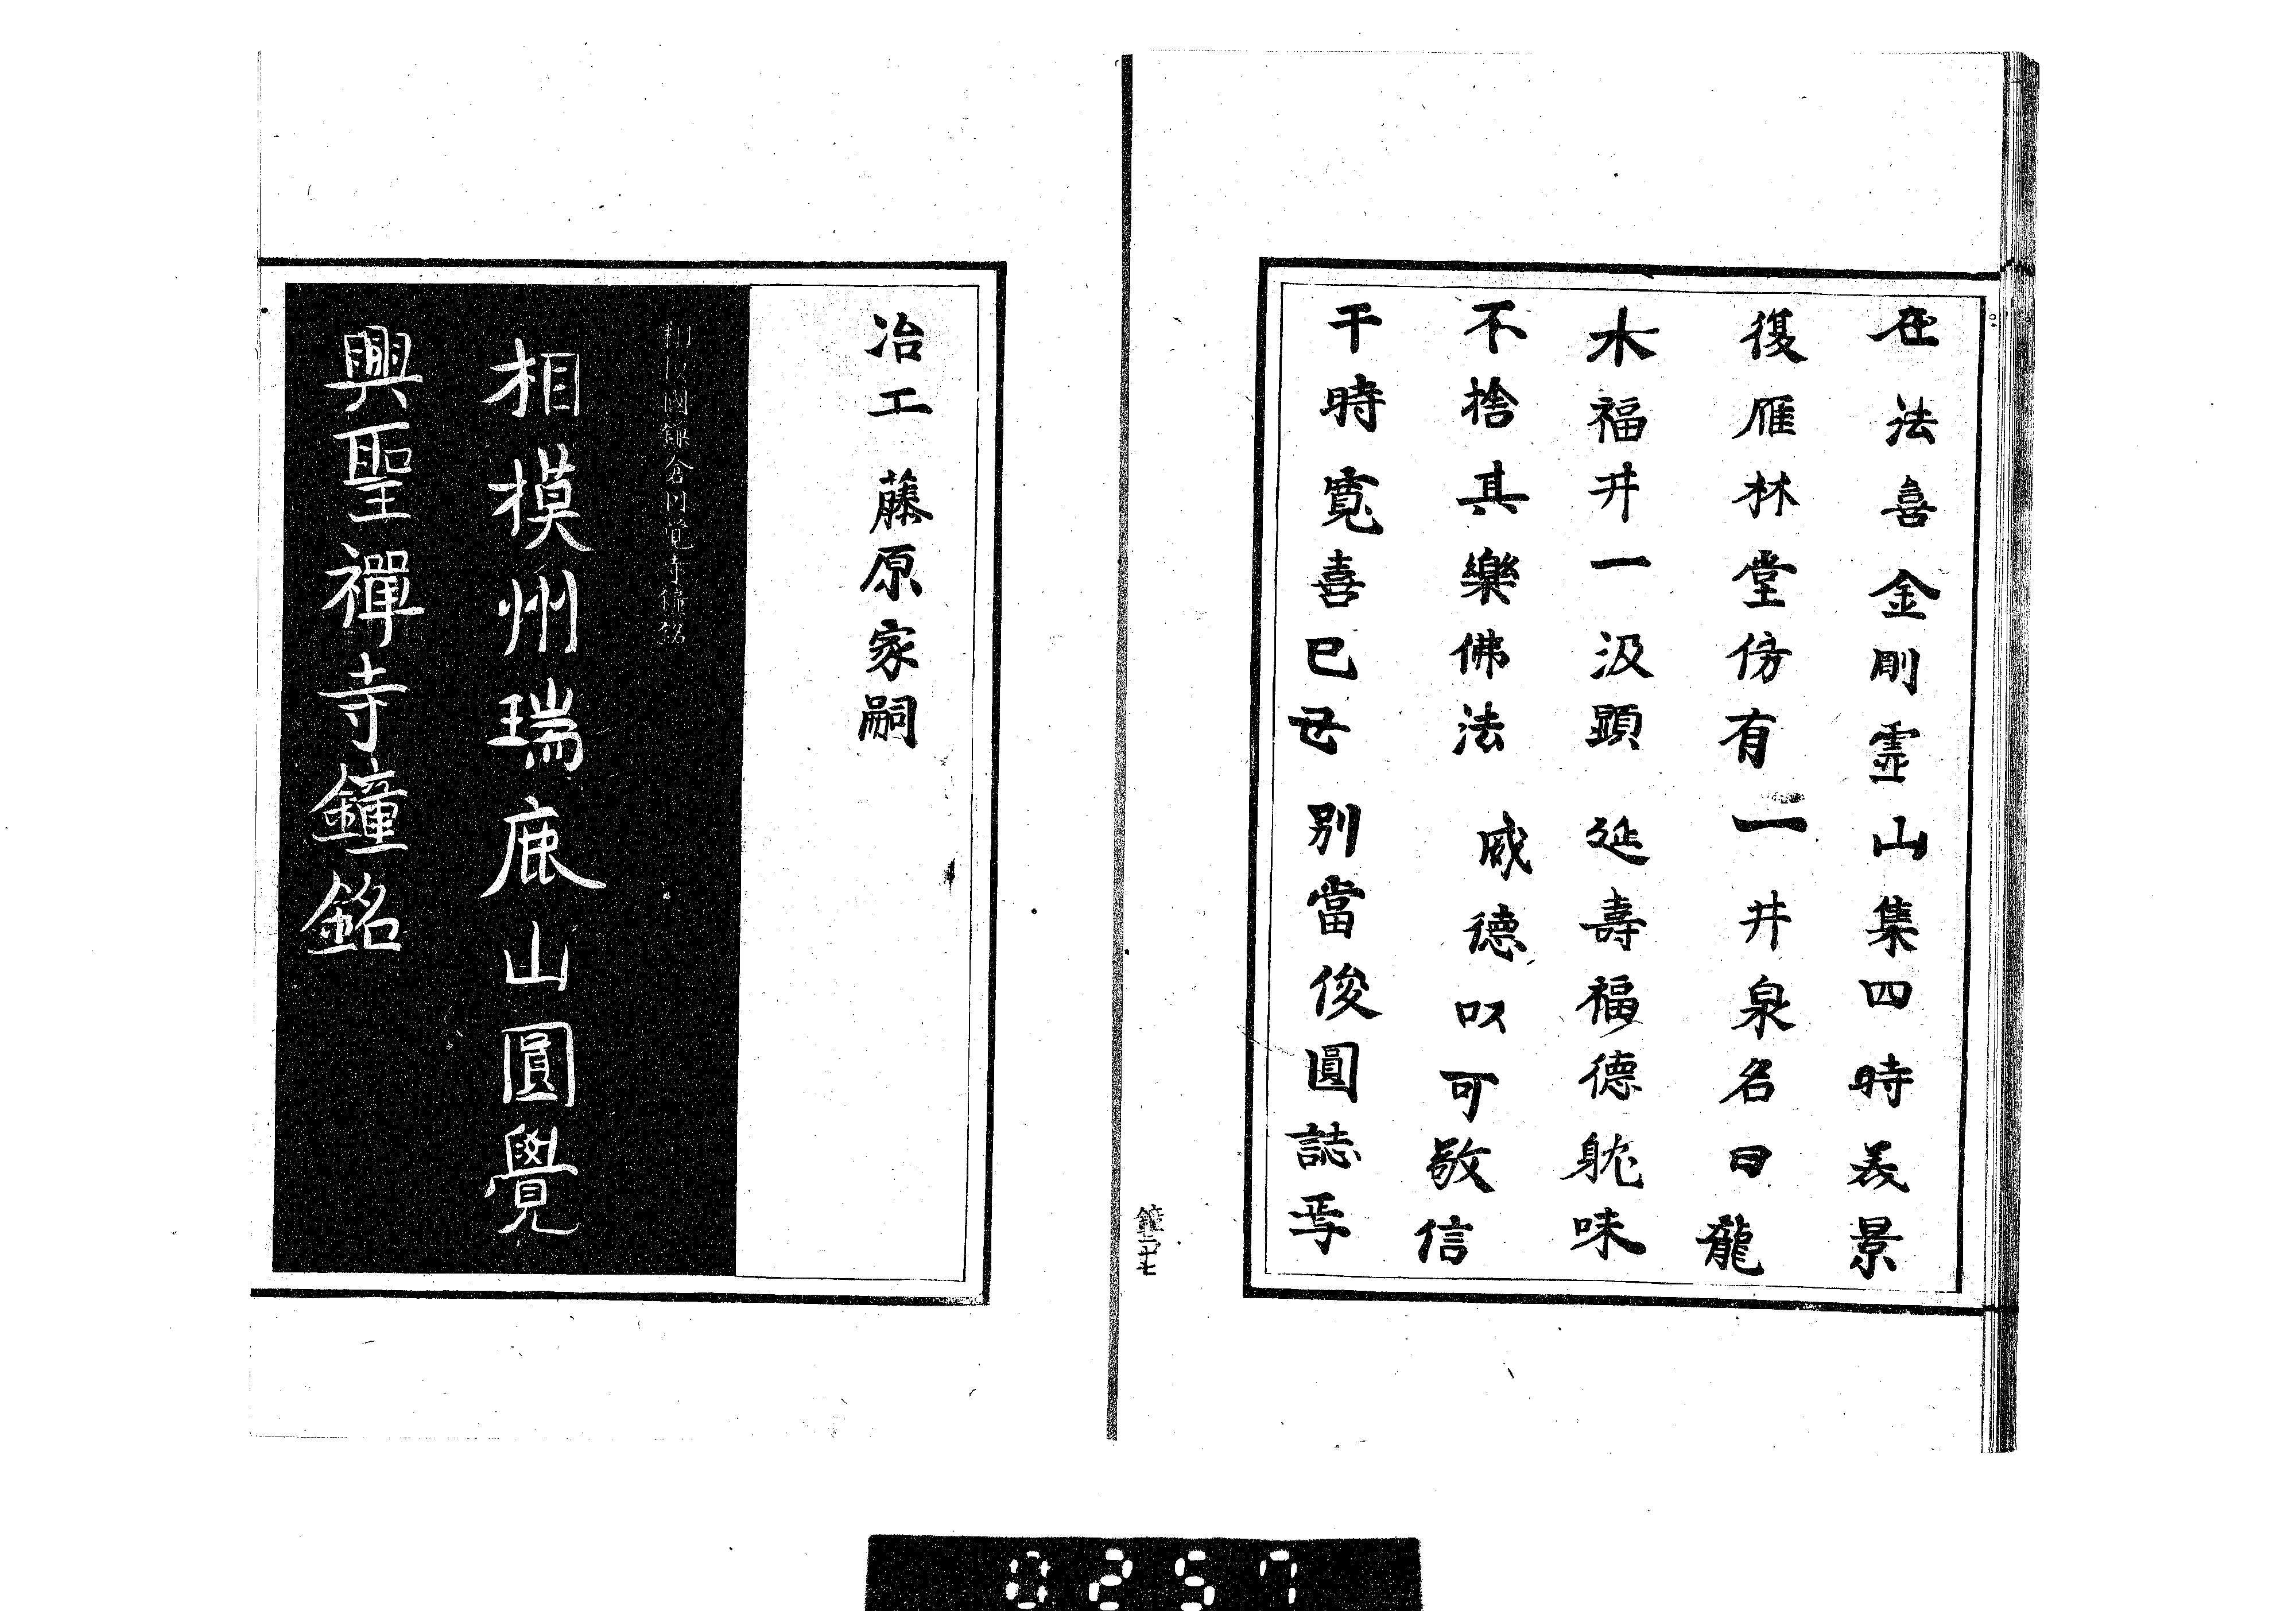 在法喜金剛霊山集四時美景
復雁林堂傍有二井泉名曰龍
水福井一汲顕延壽福德躭味
不捨其樂佛法威德以可敬信
干時寛喜己丑別當俊圓誌焉
冶工藤原家嗣
國鎌倉円覚寺鐘銘
相模州瑞鹿山圓覺
興聖禪寺鐘銘
鐘二ノ廿七
0257